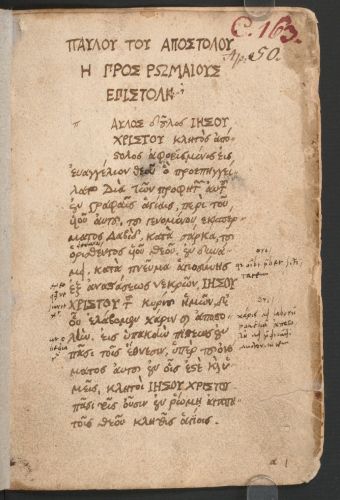 C. 163.
Ap. 50.
ΠΑΥΛΟΥ ΤΟΥ ΑΠΟΣΤΟΛΟΥ
Η ΠΡΟΣ ΡΩΜΑΙΟΥΣ
ΕΠΙΣΤΟΛΗ
π ΑΥΛΟΣ δοῦλος ΙΗΣΟΥ
ΧΡΙΣΤΟΥ κλητὸς ἀπό-
στολος ἀφορισμένος εἰς
εὐαγγέλιον θεοῦ ὃ προεπηγγεί-
λατο διὰ τῶν προφητ αὐτ
ἐν γραφαῖς ἁγίαις, περὶ τοῦ
υἱοῦ αὐτοῦ, τοῦ γενομένου ἐκ σπέρ-
ματος Δαβὶδ, κατὰ σάρκα, τοῦ
ὁρισθέντος υἱοῦ θεοῦ, ἐν δυνά-
μει, κατὰ πνεῦμα ἁγιωσύνης
ἐξ ἀναστάσεως νεκρῶν, ΙΗΣΟΥ
ΧΡΙΣΤΟΥ τ κυρίου ἡμῶν, δι'
οὗ ἐλάβομεν χάριν ϗ ἀποστο-
λὴν, εἰς ὑπακοὴν πίστεως ἐν
πᾶσι τοῖς ἔθνεσιν, ὑπὲρ τοῦ ὀνό-
ματος αὐτοῦ ἐν οἷς ἐστὲ ϗ ὑ-
μεῖς, κλητοὶ ΙΗΣΟΥ ΧΡΙΣΤΟΥ
πᾶσι τοῖς οὖσιν ἐν ῥώμῃ ἀγαπη-
τοῖς θεοῦ κλητοῖς ἁγίοις.
a 1